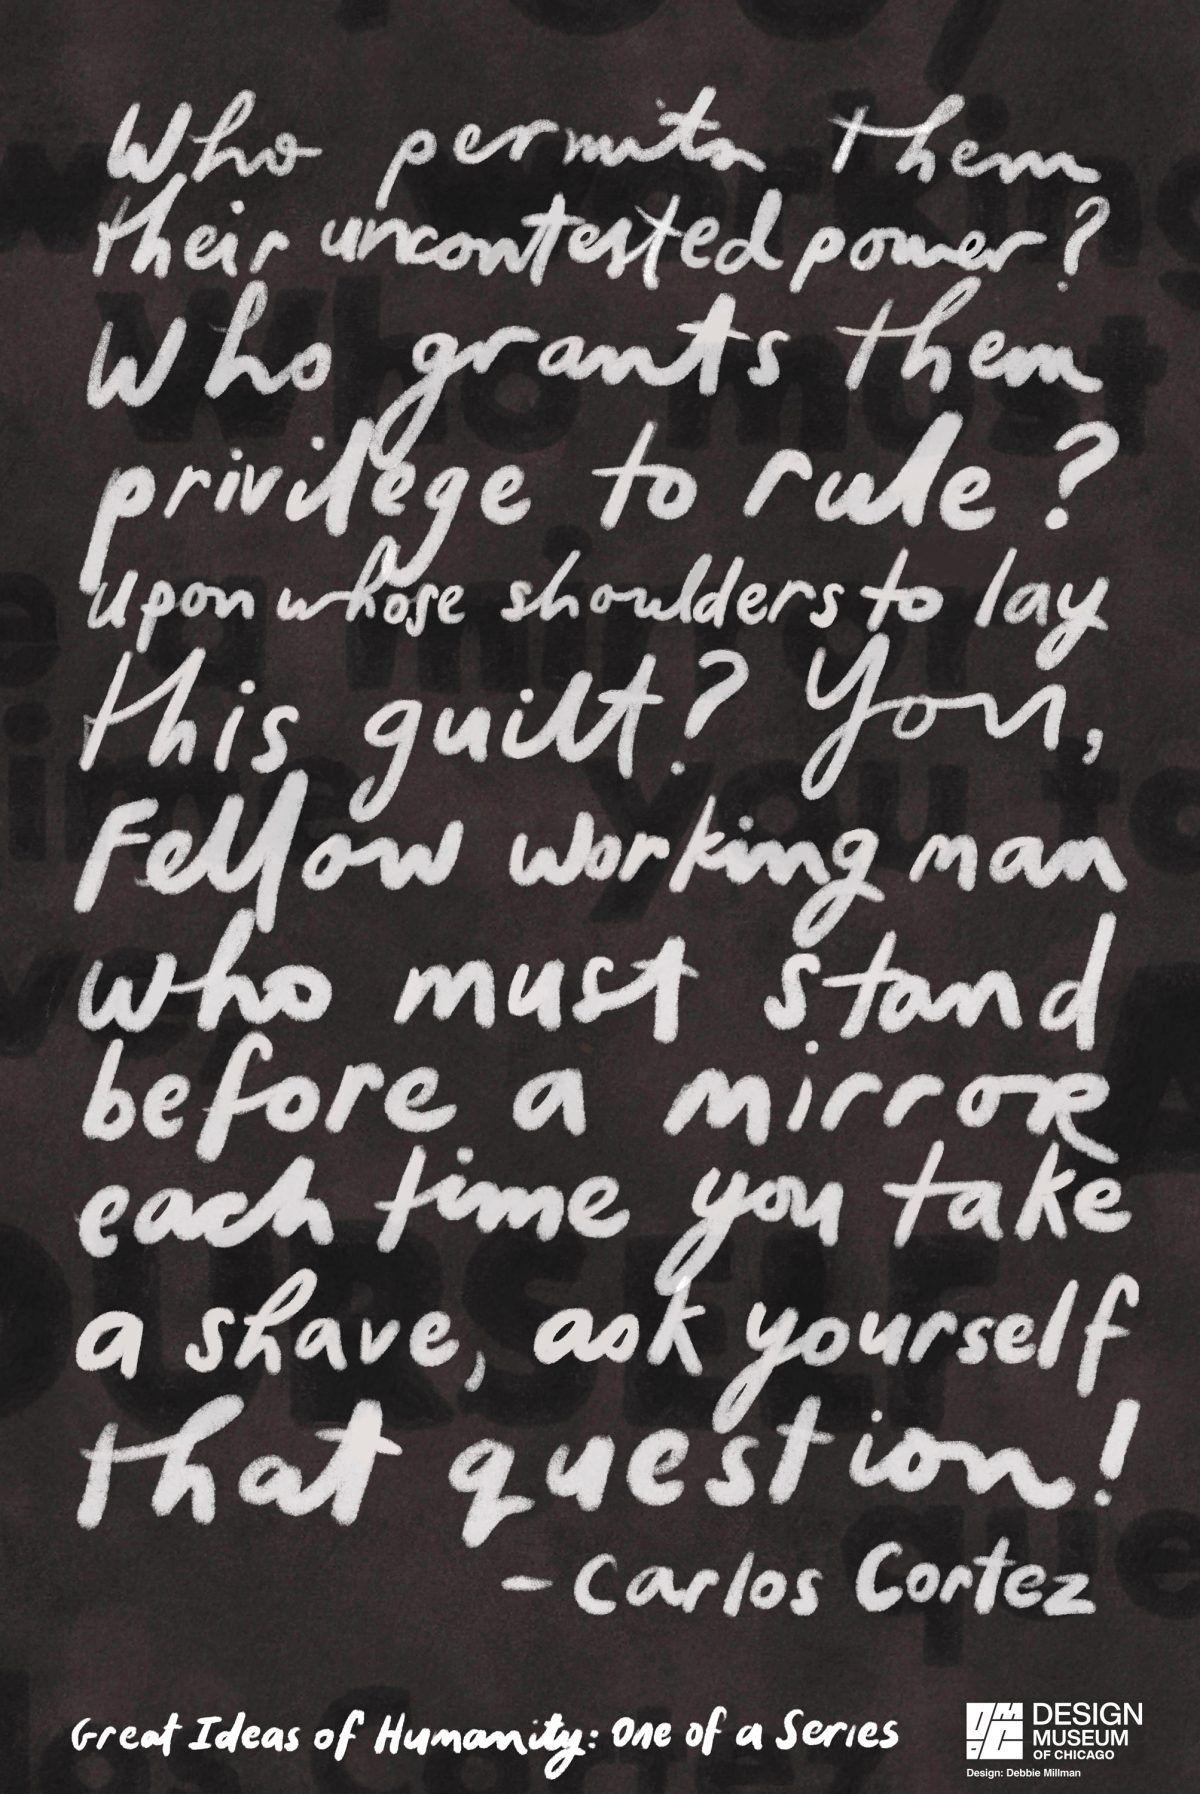 Who permits them
their uncontested power?
Who grants them
privilege to rule?
Upon whose shoulders to lay
this guilt? You,
Fellow working man
who must stand
before a mirror
each time you take
a shave, ask yourself
that question!
- Carlos Cortez
Great Ideas of Humanity: One of a Series
DESIGN
MUSEUM
OF CHICAGO
Design: Debbie Millman